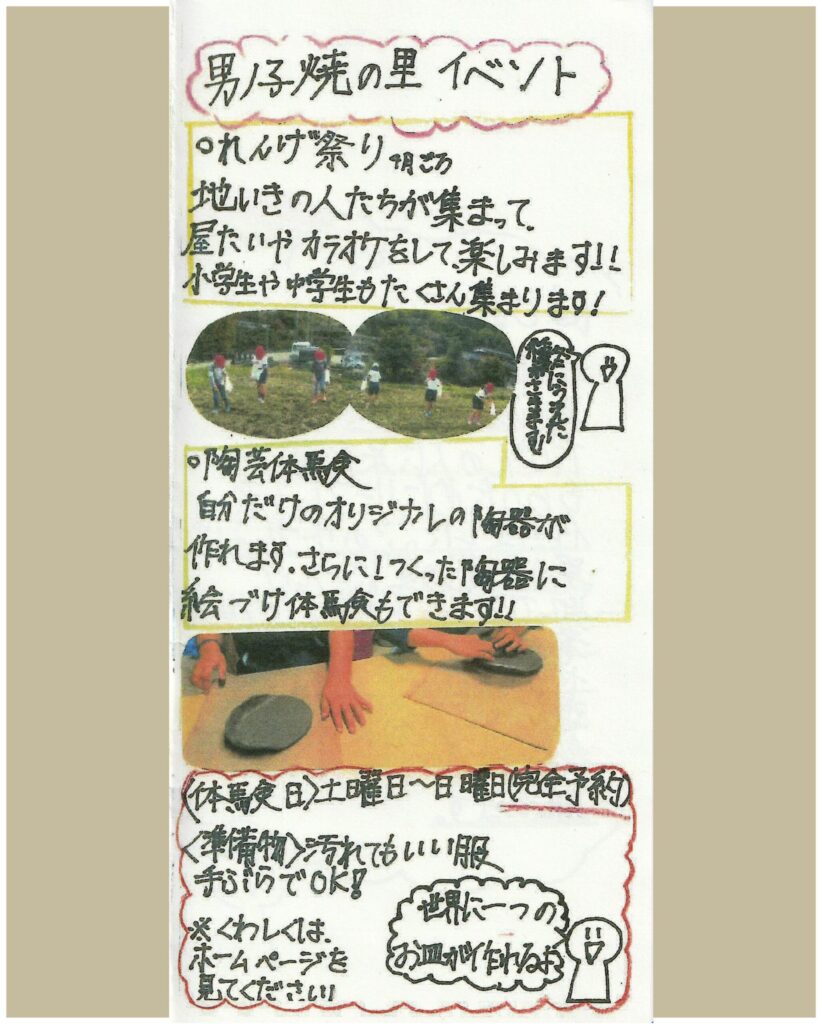 男ノ子焼の里 イベント
○れんげ祭り 4月ごろ
地いきの人たちが集まって、
屋たいや カラオケをして、楽しみます!!
小学生や中学生もたくさん集まります!
○陶芸体験
自分だけのオリジナルの陶器が
作れます。さらに!つくった陶器に
絵づけ体験もできます!!
〈体験日〉土曜日〜日曜日(完全予約)
〈準備物〉汚れてもいい服
手ぶらでOK!
世界に一つの
お皿が作れるよ
※くわしくは、
ホームページを
見てください!